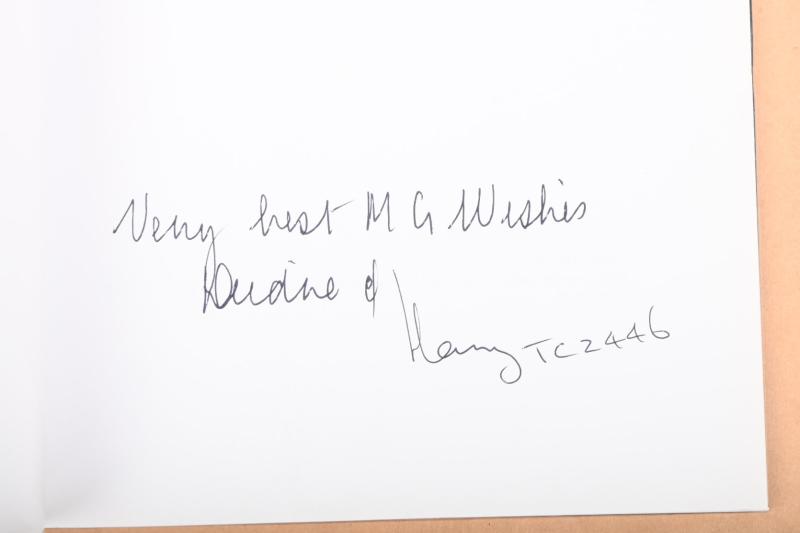 Very best M G Wishes
&
Harry TC2446